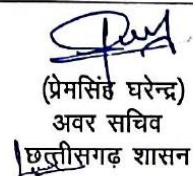 (प्रेमसिंह घरेन्द्र)
अवर सचिव
छत्तीसगढ़ शासन